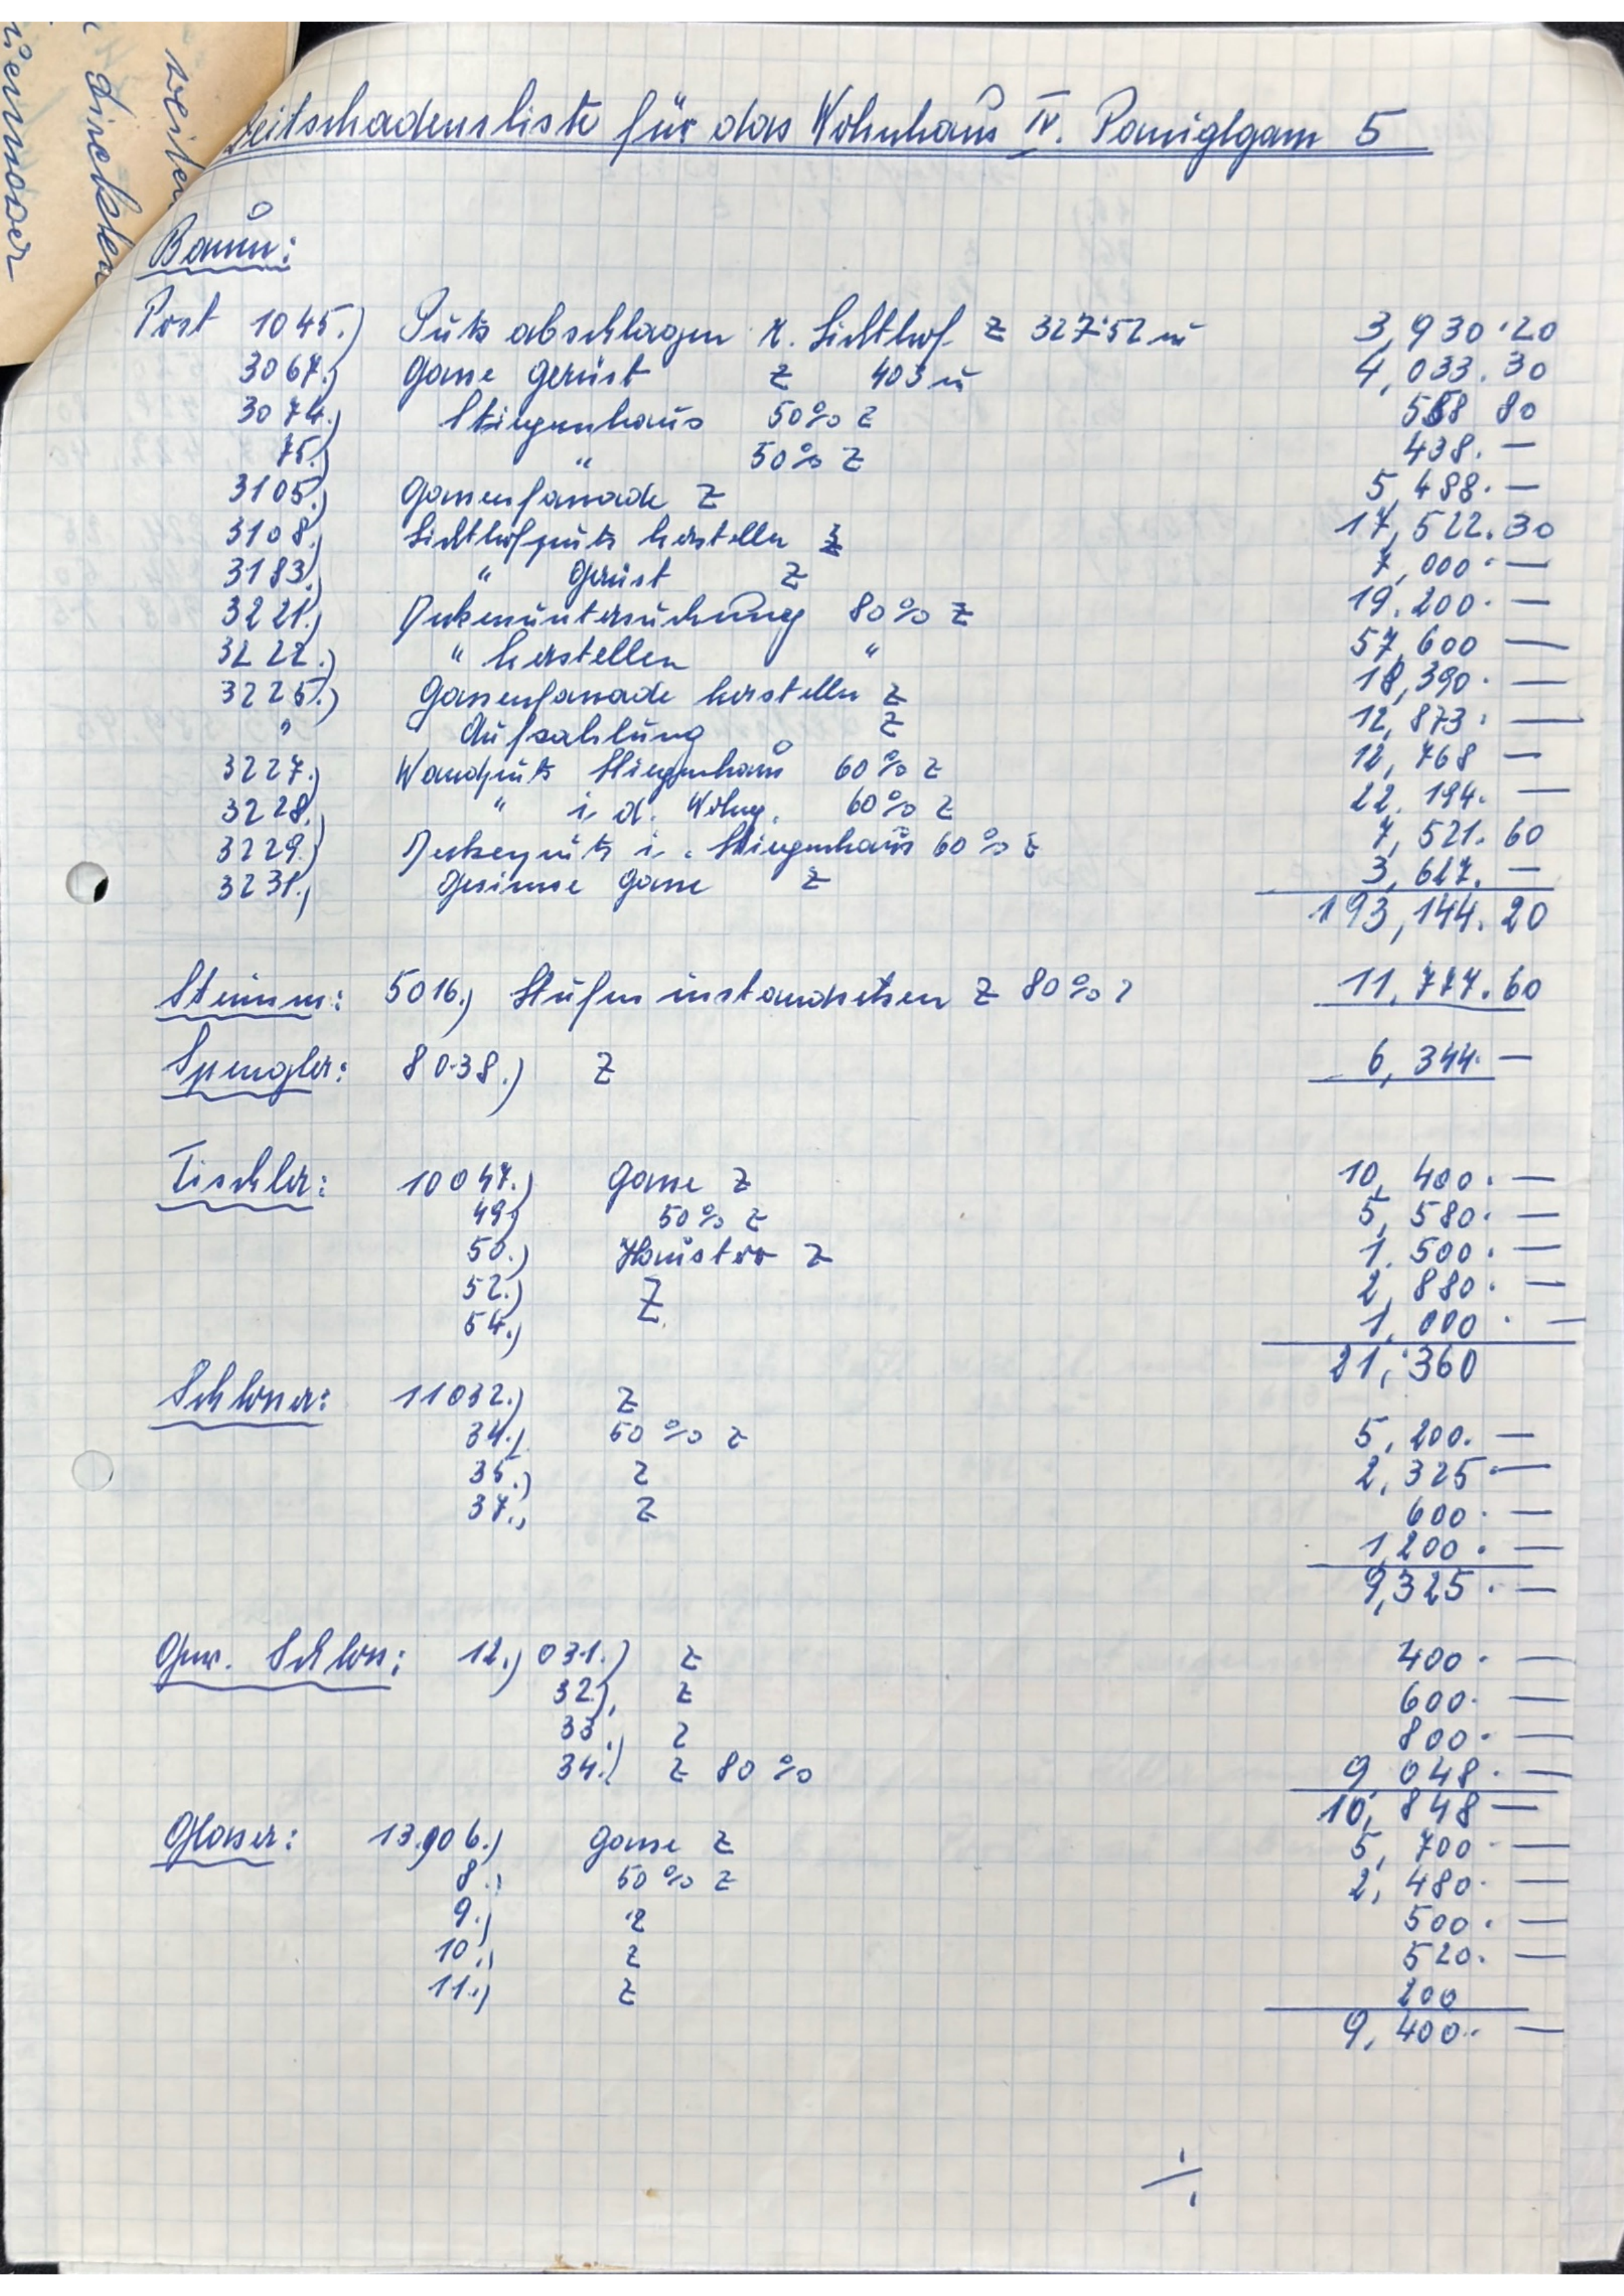 weiter
direkten
Zeitschadensliste für das Wohnhaus IV. Paniglgasse 5
Baum:
Post 1045.) Putz abschlagen K. Lichthof Z 327·52 m 3,930·20
3067.) Gasse Gerüst Z 403 m 4,033.30
3074.) Stiegenhaus 50% Z 588 80
75.) " 50% Z 438.—
3105.) Gassenfassade Z 5,488.—
3108.) Lichthofputz herstellen Z 17,522.30
3183.) " Gerüst Z 7,000.—
3221.) Deckenuntersuchung 80% Z 19.200.—
3222.) " herstellen " 57,600 —
3225.) Gassenfassade herstellen Z 18,390.—
" Aufzahlung Z 12,873.—
3227.) Wandputz Stiegenhaus 60% Z 12,768 —
3228.) " i. d. Wohng. 60% Z 22.194.—
3229.) Deckenputz i. Stiegenhaus 60% Z 7,521.60
3231.) Gesimse Gasse Z 3,627.—
193,144.20
Steinm: 5016.) Stufen instandsetzen Z 80% Z 11,777.60
Spengler: 8038.) Z 6,344.—
Tischler: 10047.) Gasse Z 10,400.—
49) 50% Z 5,580.—
50.) Haustor Z 1,500.—
52.) Z 2,880.—
54.) 1,000.—
21,360
Schlosser: 11032.) Z
34.) 50% Z 5,200.—
35.) Z 2,325.—
37.) Z 600.—
1,200.—
9,325.—
Gew. Schloss: 12.) 031.) Z 400.—
32.) Z 600.—
33.) Z 800.—
34.) Z 80% 9,048.—
10,848 —
Glaser: 13.006.) Gasse Z 5,700 —
8.) 50% Z 2,480.—
9.) Z 500.—
10.) Z 520.—
11.) Z 200
9,400.—